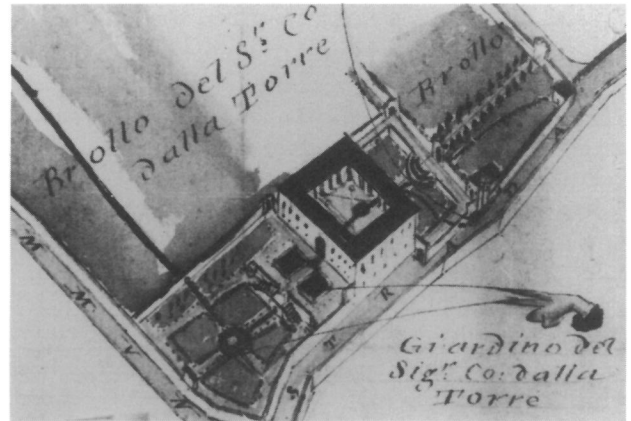 Brollo del Sr. Co
dalla Torre
Brollo
STRADA
Giardino del
Sigr. Co: dalla
Torre